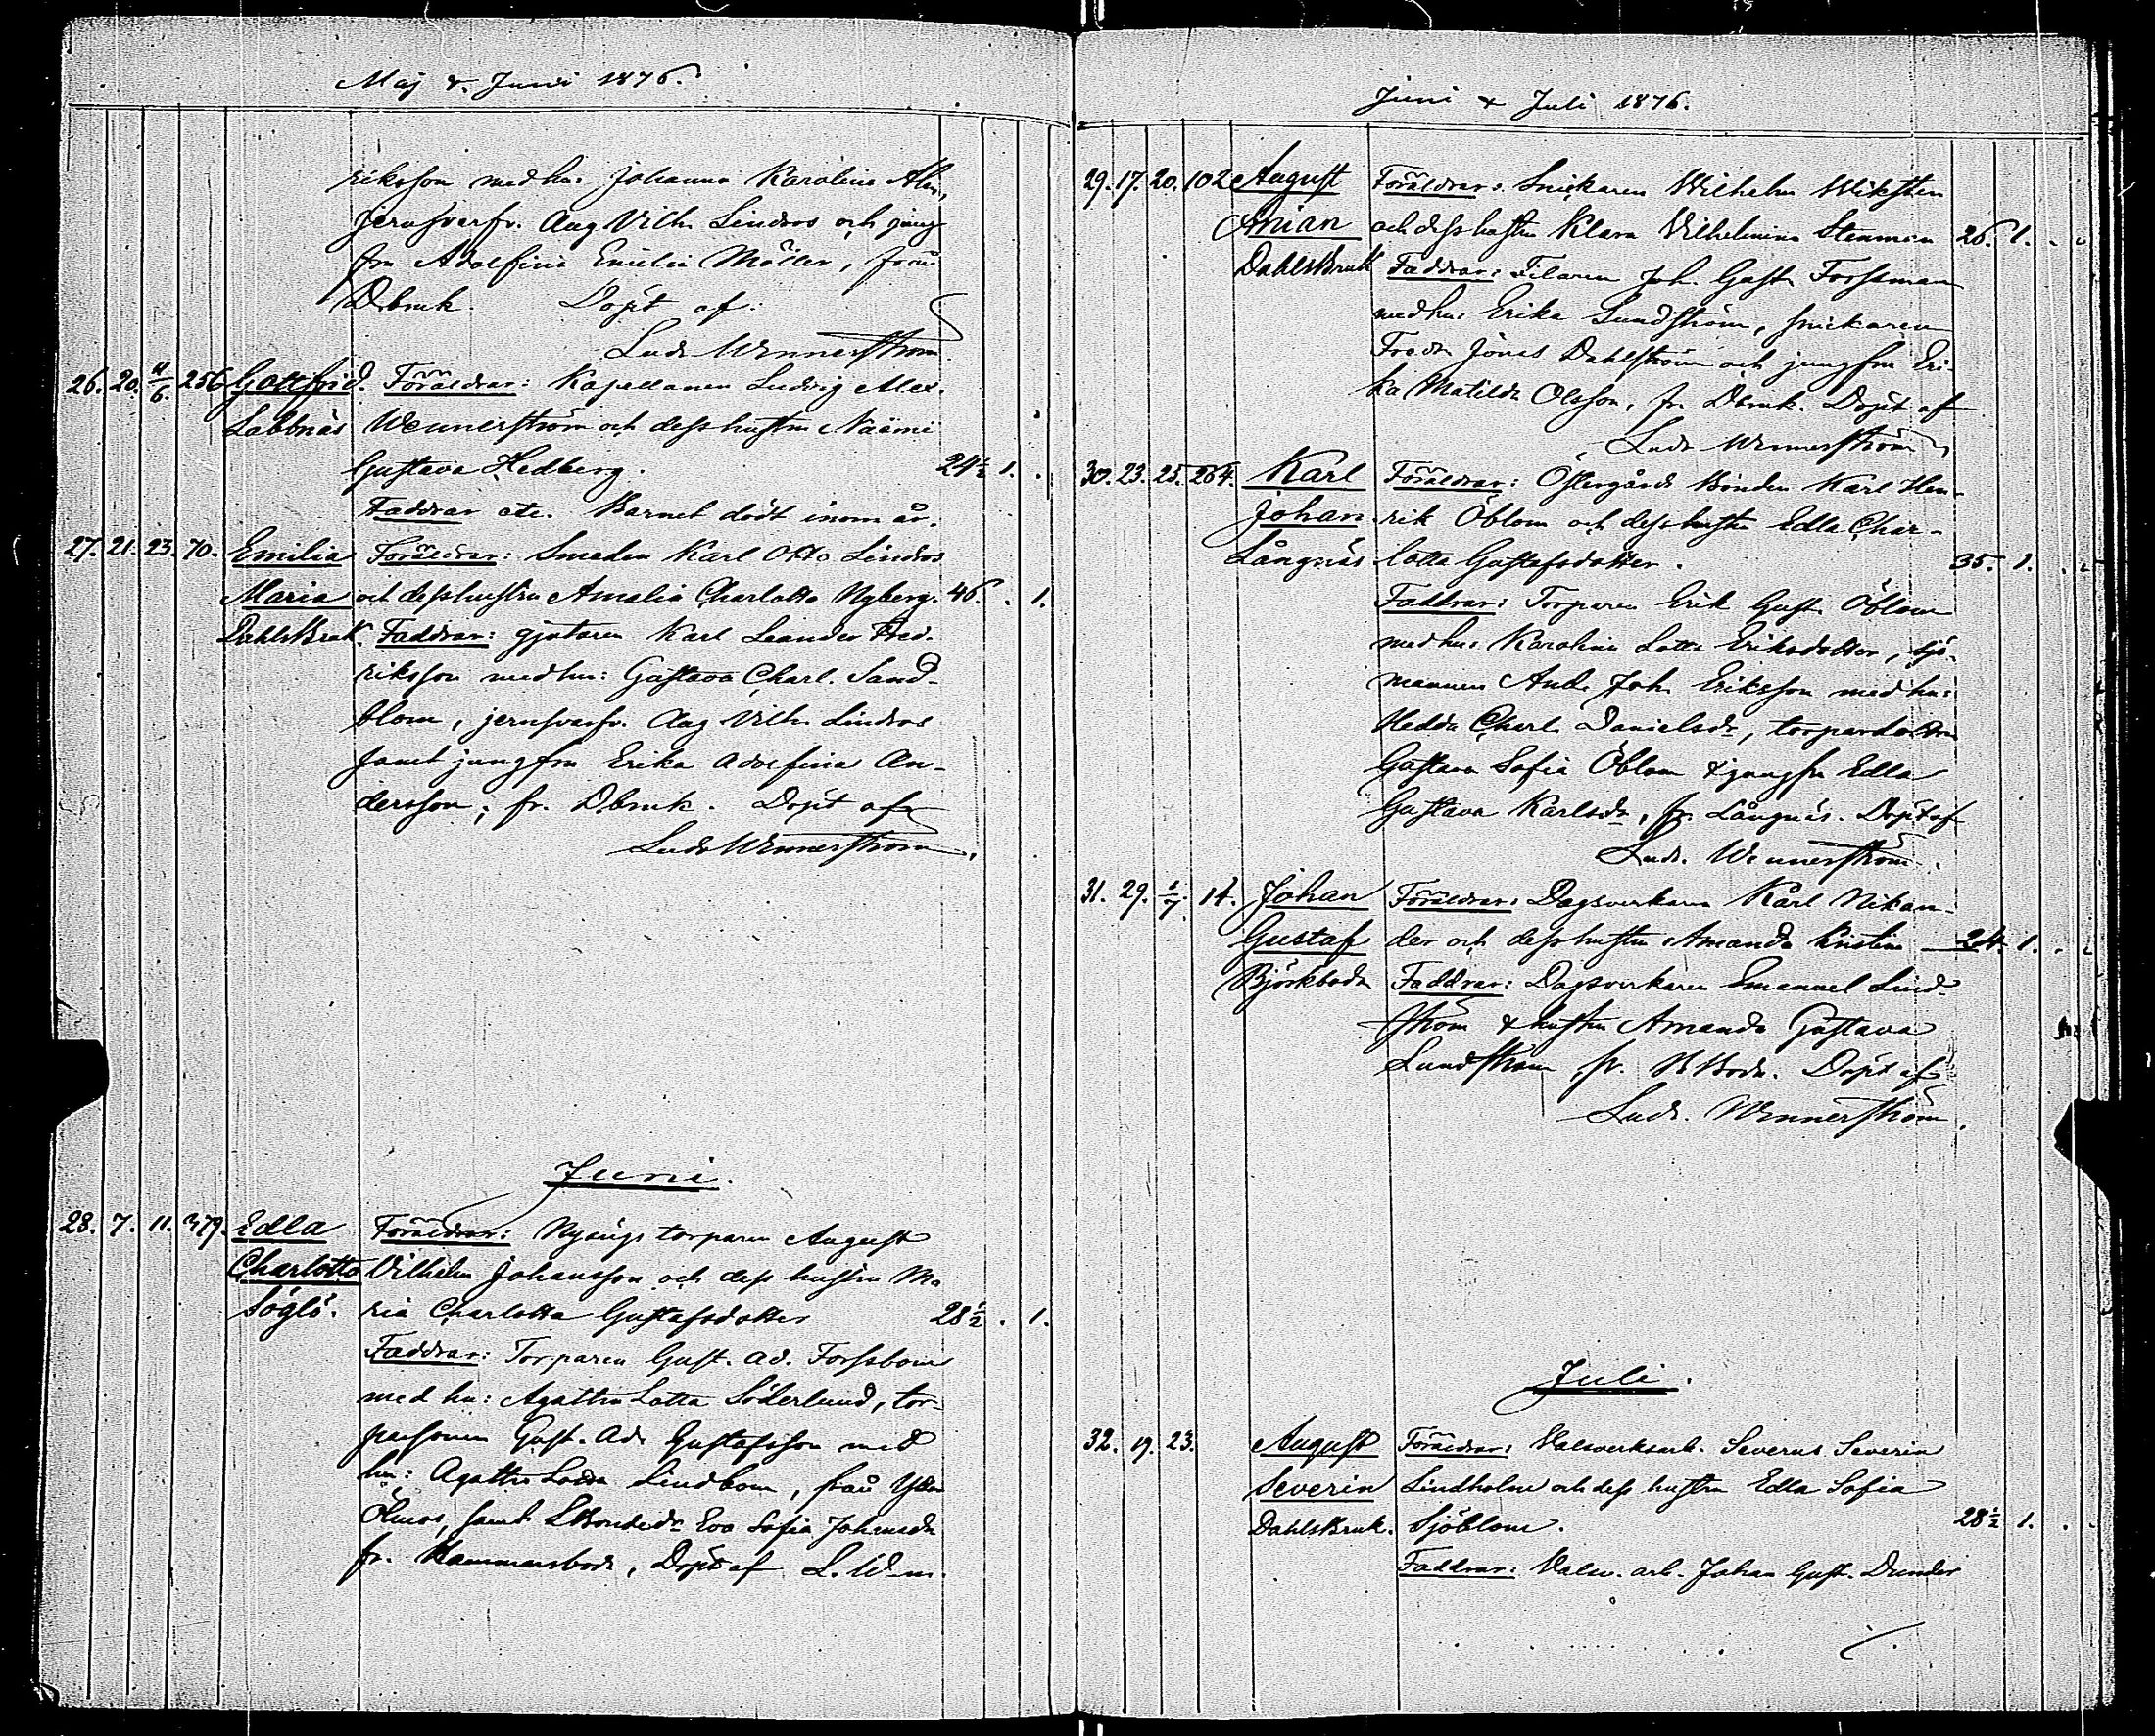 Maj & Juni 1876.
riksson med hu: Johanna Karolina Alm,
jernsvarfv. Aug. Vilh. Lindros och jung-
fru Adolfina Emilia Möller, från
D.bruk. Döpt af:
Ludv. Wennerström
26. 20. 11/6. 256 Gottfrid. Föräldrar: Kapellanen Ludvig Alex.
Labbnäs Wennerström och dess hustru Naëmi
Gustava Hedberg. 24½ 1.
Faddrar etc. Barnet dödt inom år.
27. 21. 23. 70. Emilia Föräldrar: Smeden Karl Otto Lindros
Maria och dess hustru Amalia Charlotta Nyberg. 46. . 1.
DahlsBruk. Faddrar: gjutaren Karl Leander Fred-
riksson med hu: Gustava Charl. Sand-
blom, jernsvarfv. Aug Vilh. Lindros
samt jungfru Erika Adolfina An-
dersson, fr. Dbruk. Döpt af
Ludv Wennerström.
Juni.
28. 7. 11. 379. Edla Föräldrar: Nyängs torparen August
Charlotta Vilhelm Johansson och dess hustru Ma
Söglö. ria Charlotta Gustafsdotter 28½ . 1.
Faddrar: Torparen Gust. Ad. Forssbom
med hu: Agatha Lotta Söderlund, tor-
parsonen Gust. Ad. Gustafsson med
hu: Agatha Lovisa Lindbom, från Ytter
Ölmos, samt Eva Sofia Johansdr
fr. Hammarsboda, Döpt af L. W-m.
Juni & Juli 1876.
29. 17. 20. 102 August Föräldrar: Snickaren Wilhelm Wiksten
Anian och dess hustru Klara Vilhelmina Stenman 26. 1. . .
DahlsBruk Faddrar: Filaren Joh. Gust. Forssman
med hu: Erika Sundström, snickaren
Fredr. Jönas Dahlström och jungfru Eri-
ka Matilda Olsson, fr. Dbruk. Döpt af
Ludv Wennerström
30. 23. 25. 264. Karl Föräldrar: Östergårds Bonden Karl Hen-
Johan. rik Öblom och dess hustru Edla Char-
Långnäs lotta Gustafsdotter. 35. 1. . .
Faddrar: Torparen Erik Gust. Öblom
med hu: Karolina Lotta Eriksdotter, sjö-
mannen And. Joh. Eriksson med hu:
Hedda Charl. Danielsdr, torpardottren
Gustava Sofia Öblom & jungfru Edla
Gustava Karlsdr, fr. Långnäs. Döpt af
Ludv. Wennerström.
31. 29. 2/7. 14. Johan Föräldrar: Dagsverkaren Karl Nikan-
Gustaf der och dess hustru Amanda Kristina 24. 1. . .
Björkboda Faddrar: Dagsverkaren Emanuel Lind-
ström & hustru Amanda Gustava
Lundström fr. BBoda. Döpt af
Ludv. Wennerström.
Juli.
32. 19. 23. August Föräldrar: Valsverksarb. Severus Severin
Severin Lindholm och dess hustru Edla Sofia
DahlsBruk. Sjöblom. 28½ 1. .
Faddrar: Valsv. arb. Johan Gust. Dunder